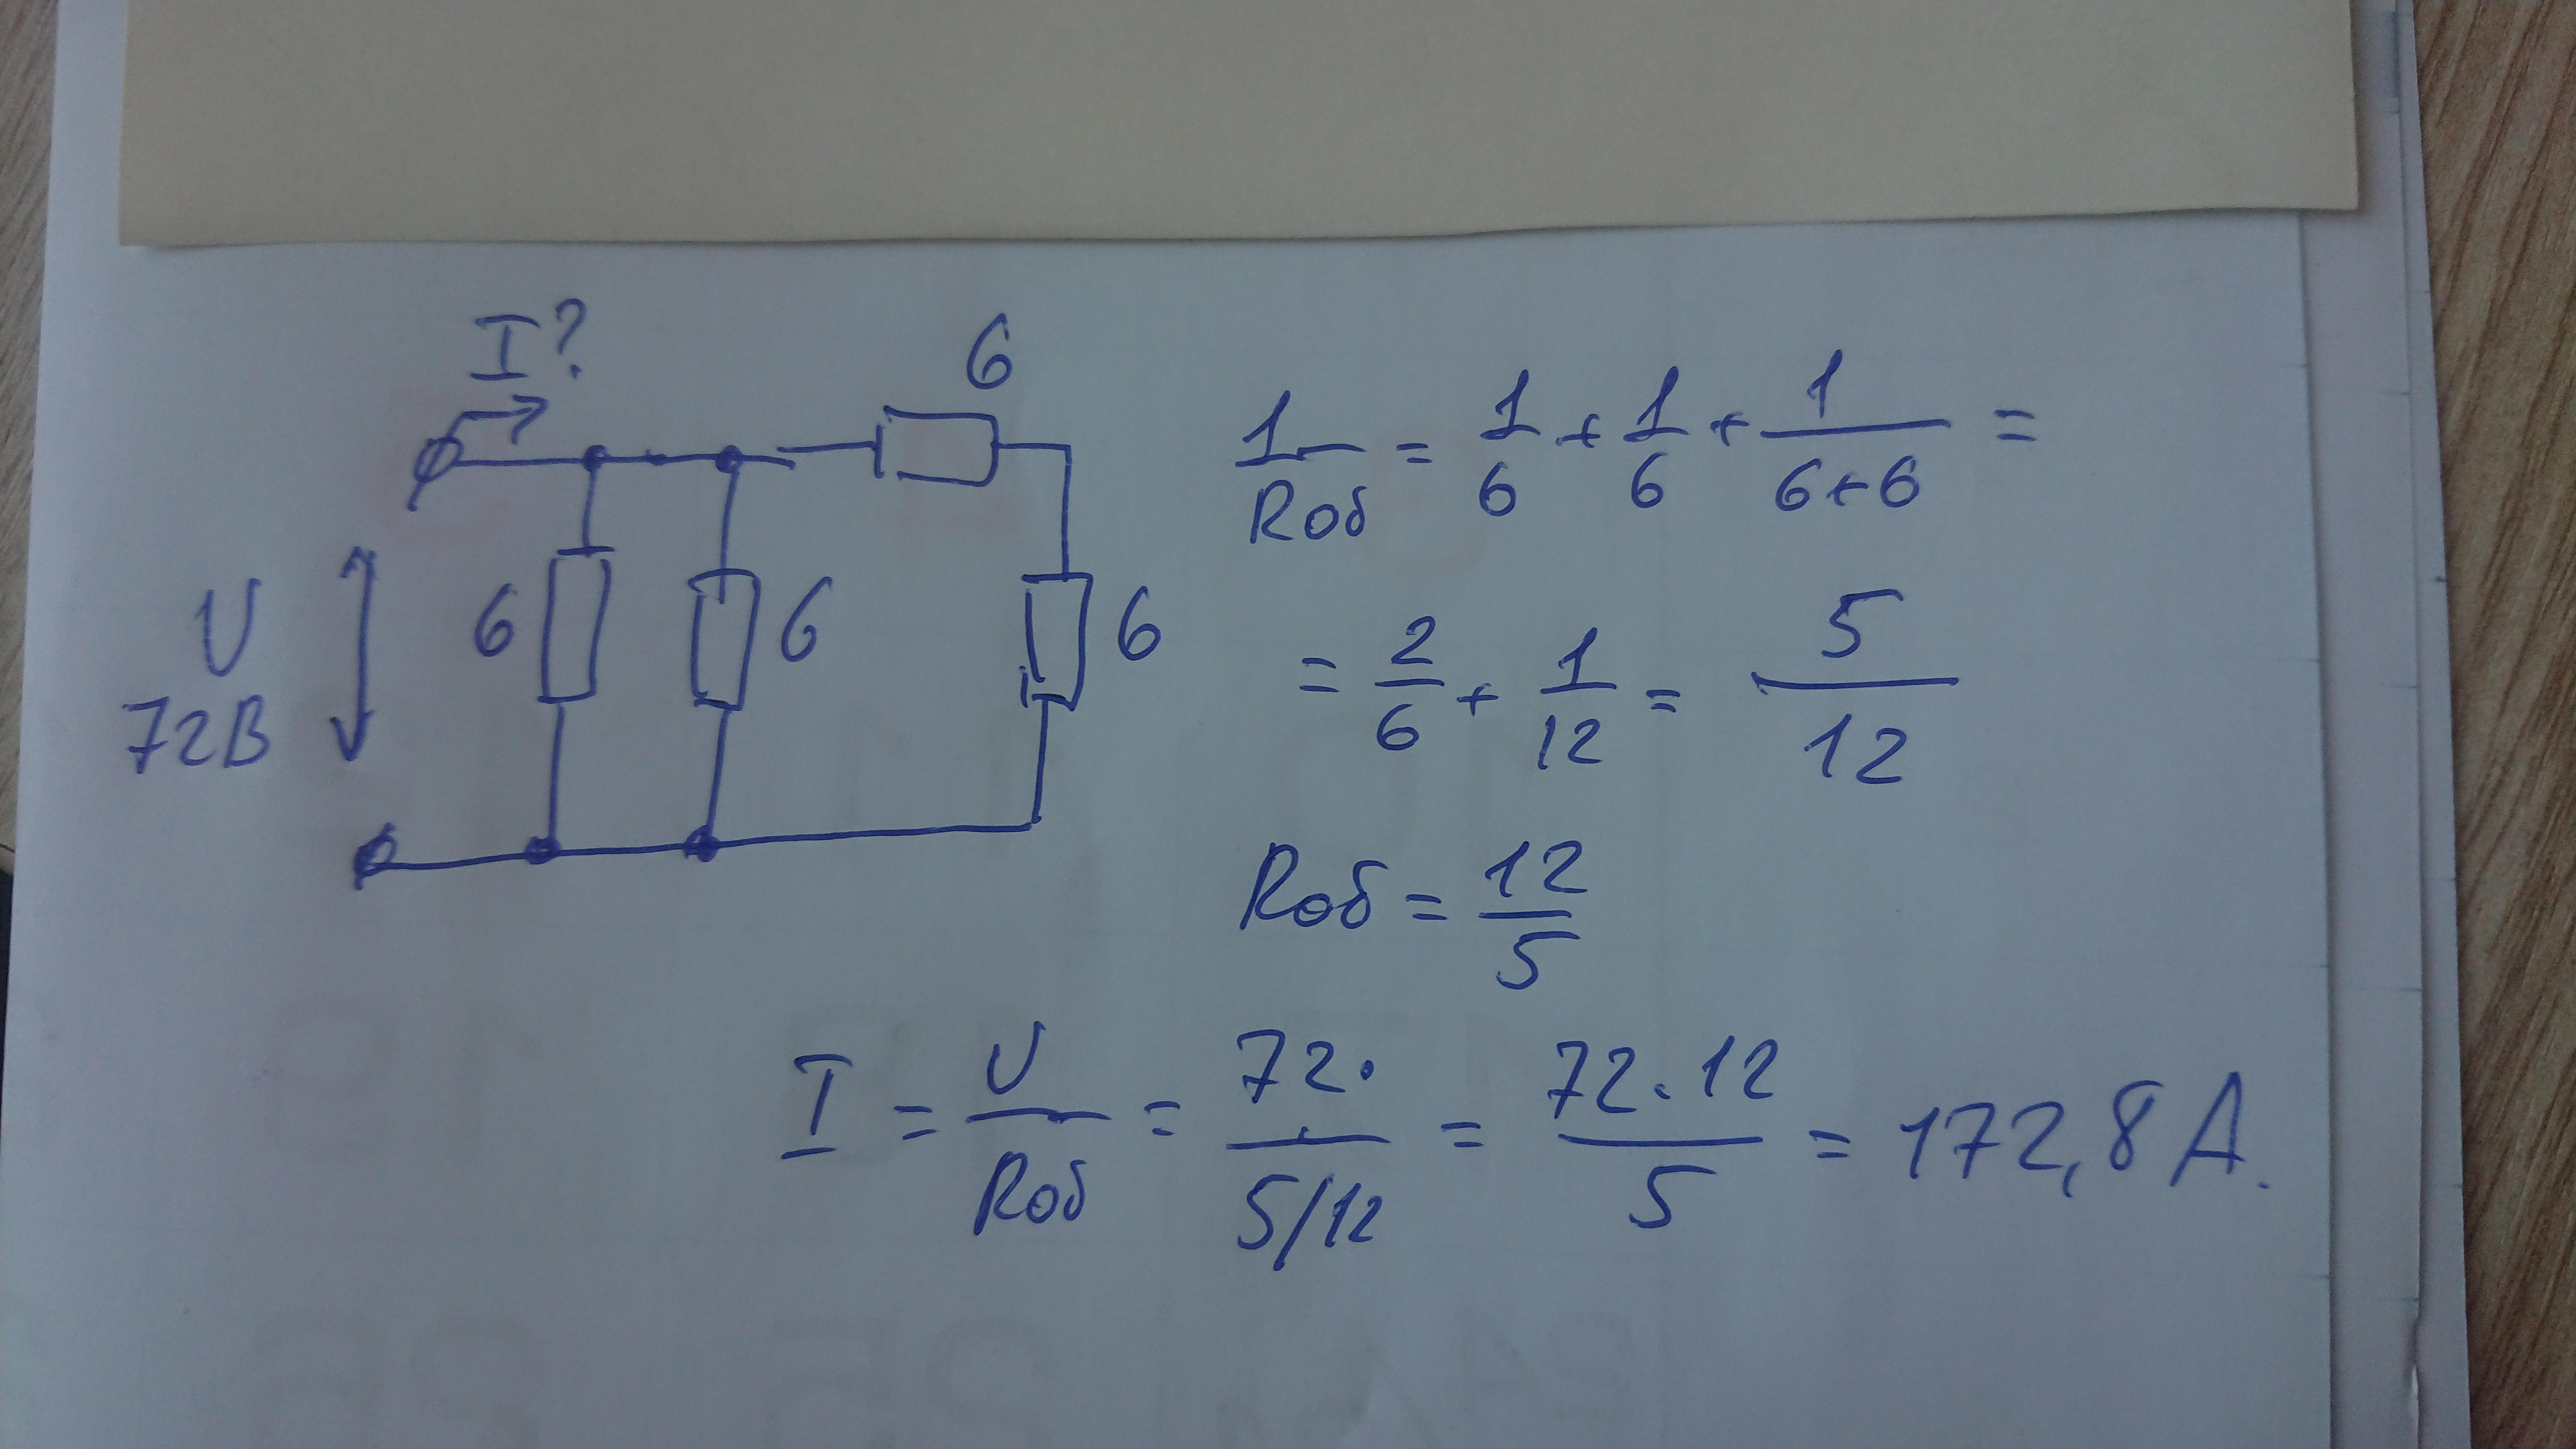 I?
6
6
6
6
U
72В
1/Rоб = 1/6 + 1/6 + 1/(6+6) =
= 2/6 + 1/12 = 5/12
Rоб = 12/5
I = U/Rоб = 72·/(5/12) = 72·12/5 = 172,8 А.